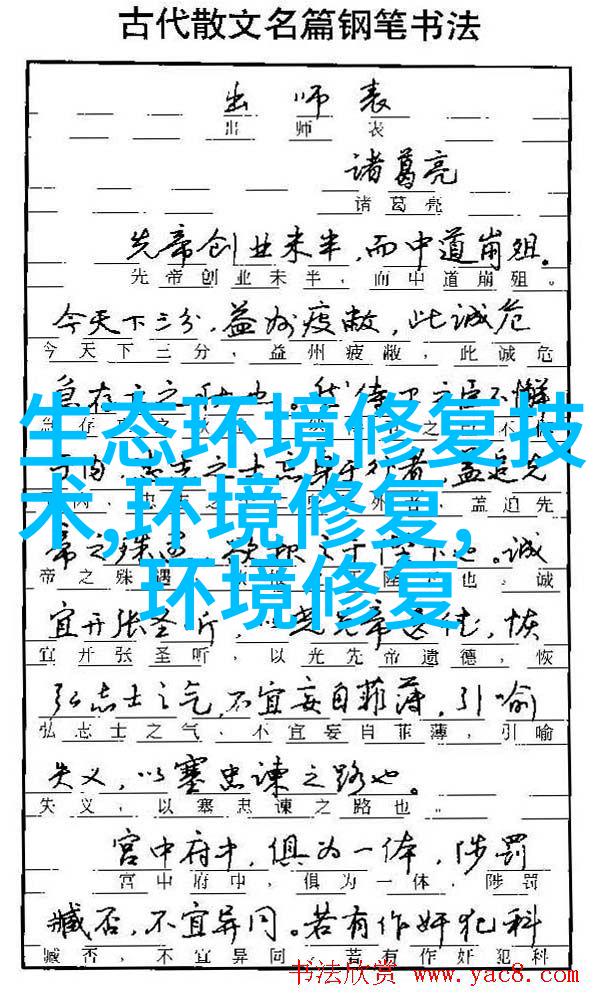 古代散文名篇钢笔书法
出师表
出师表
诸葛亮
诸葛亮
先帝创业未半,而中道崩殂。
先帝创业未半,而中道崩殂。
今天下三分,益州疲敝,此诚危
今天下三分,益州疲敝,此诚危
急存
生态环境修复技
术,环境修复,
环境修复
盖追先
帝之殊遇
诚
帝之殊遇 也,诚
宜开张圣听,以光先帝遗德,恢
宜开张圣听,以光先帝遗德,恢
弘志士之气,不宜妄自菲薄,引喻
弘志士之气,不宜妄自菲薄,引喻
失义,以塞忠谏之路也。
失义,以塞忠谏之路也。
宫中府中,俱为一体,陟罚
宫中府中,俱为一体,陟罚
臧否,不宜异同。若有作奸犯科
臧否,不宜异同。若有作奸犯科
书法欣赏 www.yac8.com